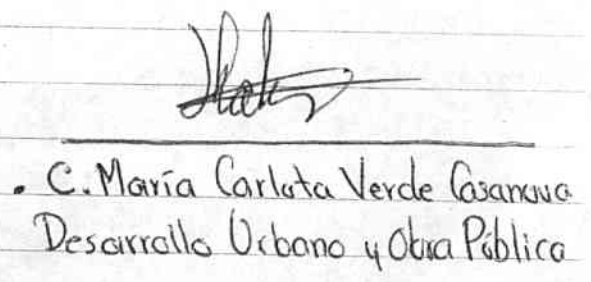 . C. María Carlota Verde Casanova
Desarrollo Urbano y Obra Pública